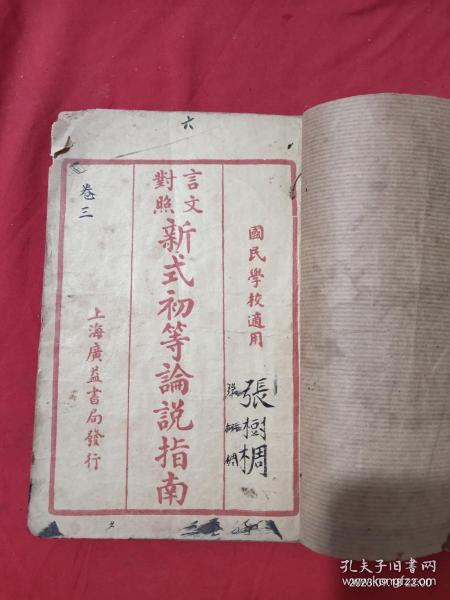 六
國民學校適用
張樹椆
言文
對照
新式初等論說指南
卷三
上海廣益書局發行
孔夫子旧书网
www.kongfz.com